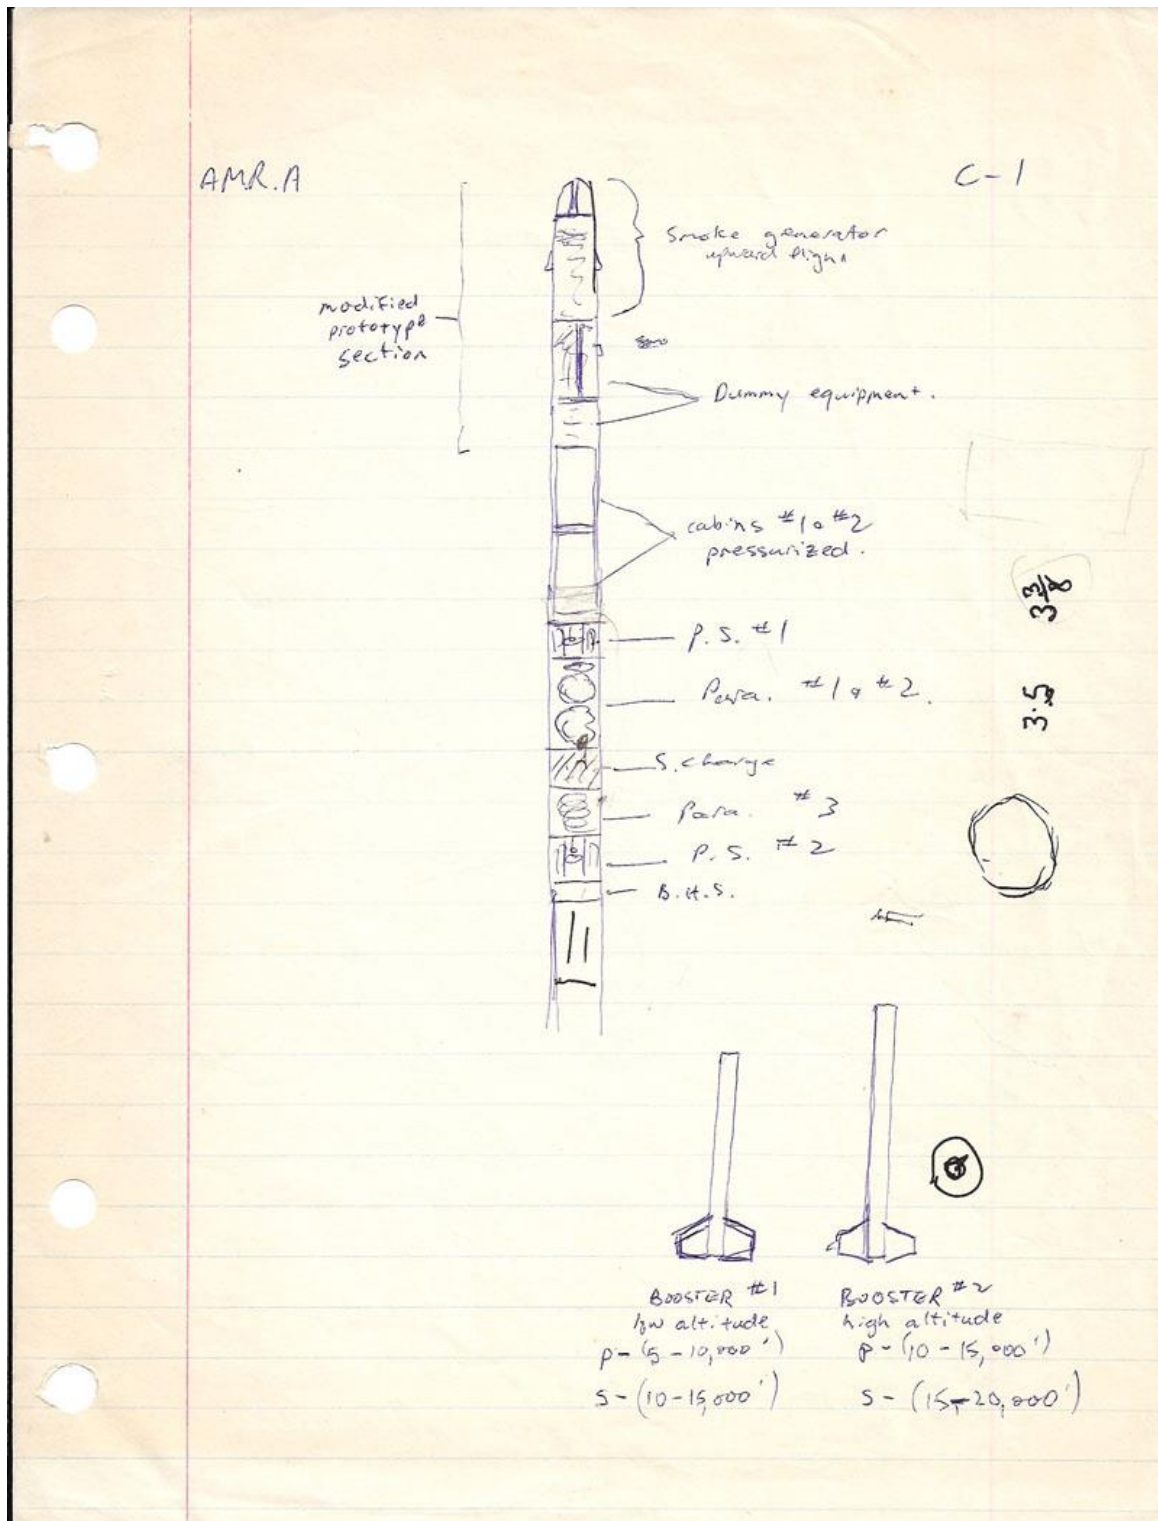 AMR.A
C-1
Smoke generator
upward flight
modified
prototype
section
Dummy equipment.
cabins #1 & #2
pressurized.
P.S. #1
Para. #1 & #2.
S. charge
Para. #3
P.S. #2
B.H.S.
3 3/8
3.5
BOOSTER #1
low altitude
P - (5 - 10,000')
S - (10 - 15,000')
BOOSTER #2
high altitude
P - (10 - 15,000')
S - (15 - 20,000')